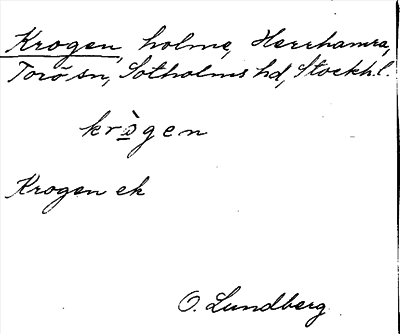 Krogen, holme, Herrhamra,
Torö sn, Sotholms hd, Stockh.l.
krògen
Krogen ek
O. Lundberg